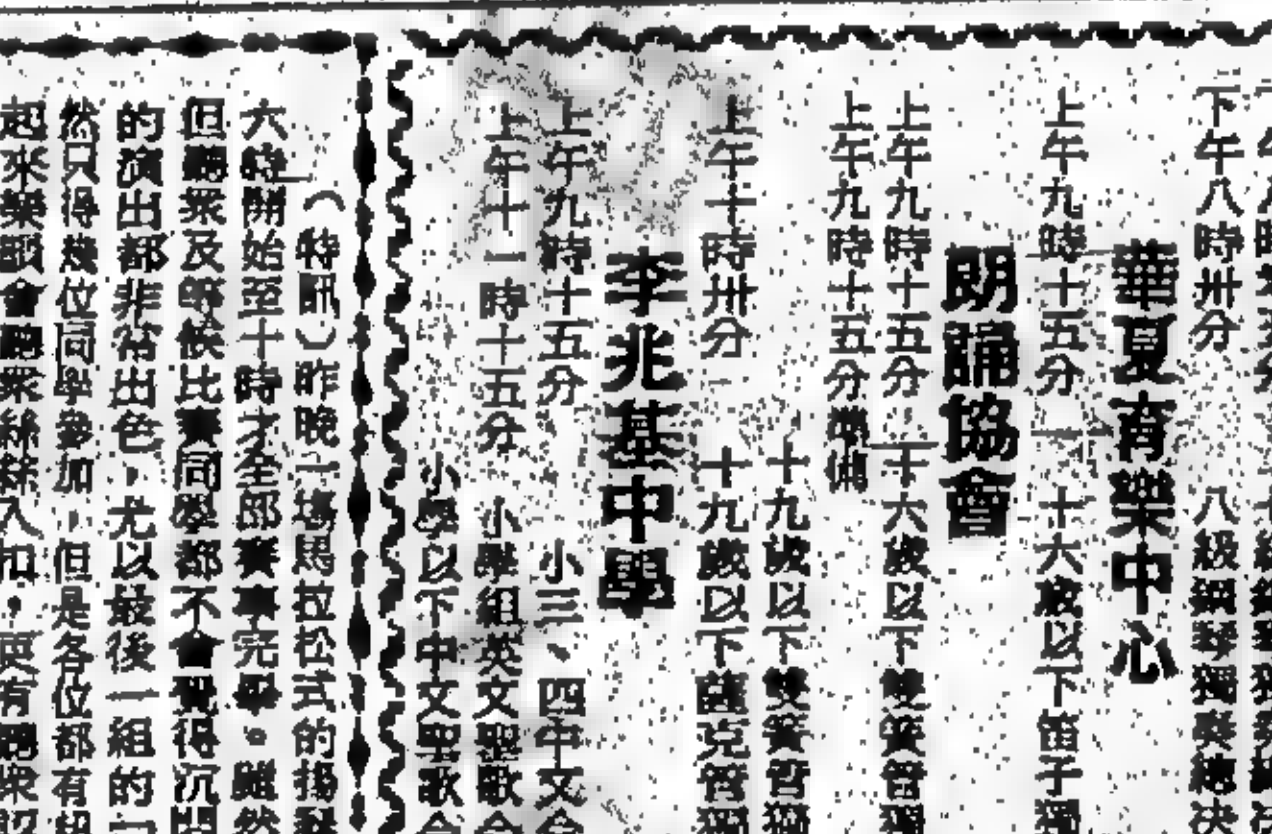 下午八時卅分　八級鋼琴獨奏總決
華夏育樂中心
上午九時十五分　十六歲以下笛子獨
朗誦協會
上午九時十五分　十六歲以下雙簧管獨
上午九時十五分準備
十九歲以下雙簧管獨
上午十時卅分　十九歲以下薩克管獨
李兆基中學
上午九時十五分　小三、四中文合
上午十一時十五分　小學組英文聖歌合
小學以下中文聖歌合
（特訊）昨晚一場馬拉松式的揚琴
六時開始至十時才全部賽事完畢。雖然
但聽眾及等候比賽同學都不會覺得沉悶
的演出都非常出色，尤以最後一組的
然只得幾位同學參加，但是各位都有
起來樂韻會聽眾絲絲入扣，更有聽眾認